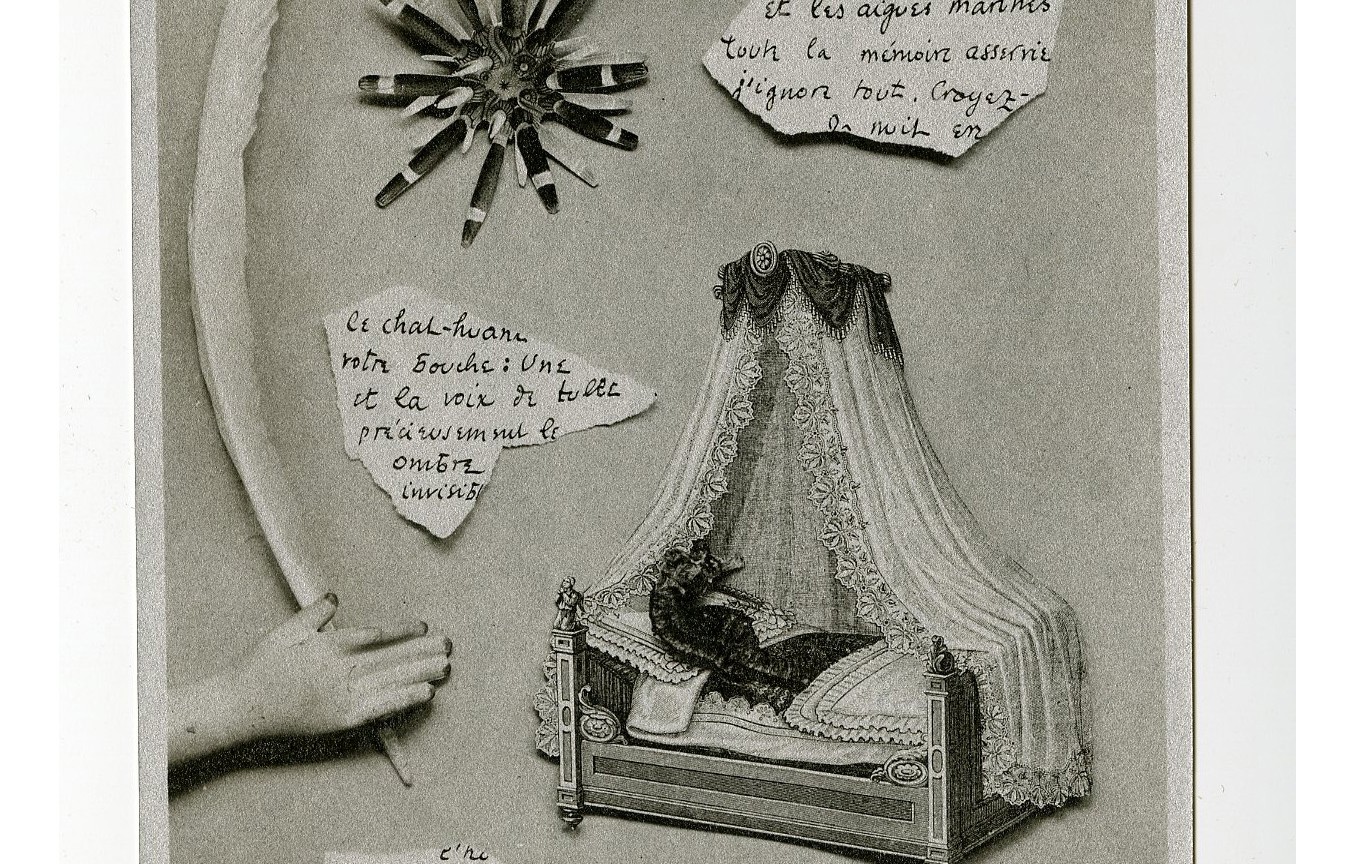 et les aigues marines
toute la mémoire asservie
j'ignore tout. Croyez-
la nuit en
Ce chat-huant
votre bouche : Une
et la voix de tulle
précieusement le
ombre
invisibl